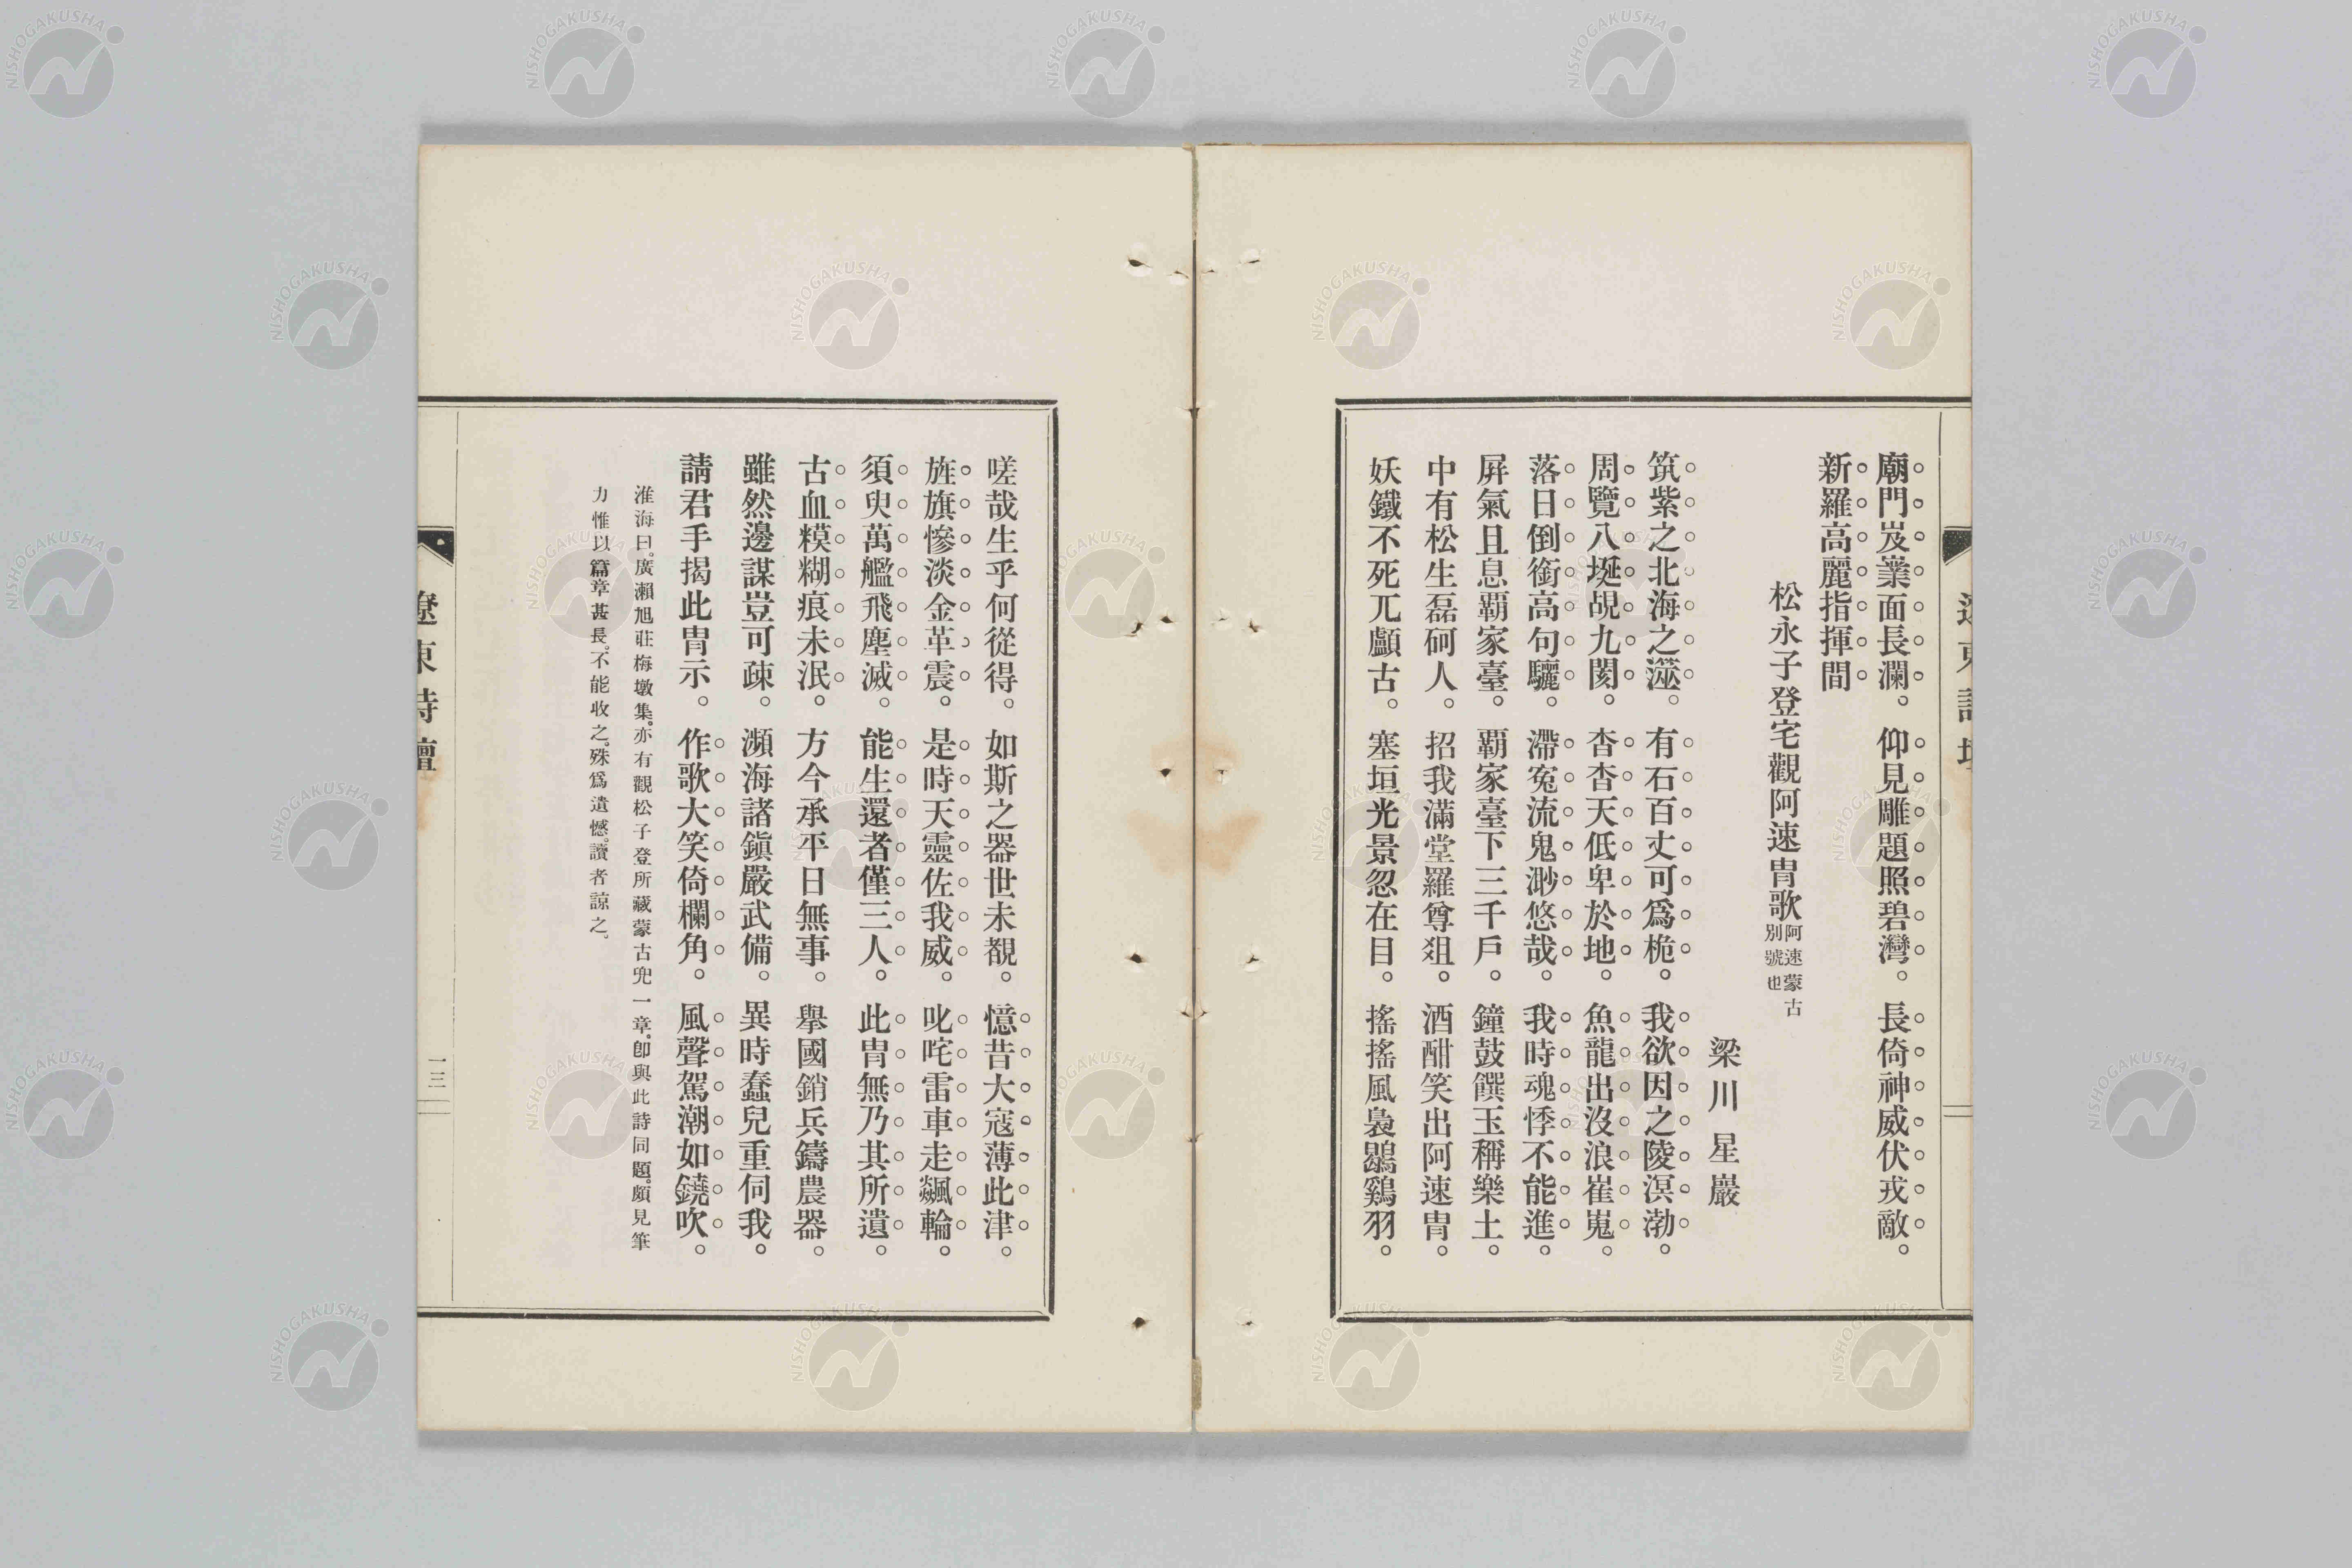 廟門岌嶪面長瀾。仰見雕題照碧灣。長倚神威伏戎敵。
新羅高麗指揮間
松永子登宅觀阿速冑歌阿速蒙古別號也
梁川星巖
筑紫之北海之澨。有石百丈可爲桅。我欲因之陵溟渤。
周覽八埏覘九閡。杳杳天低卑於地。魚龍出沒浪崔嵬。
落日倒銜高句驪。滯寃流鬼渺悠哉。我時魂悸不能進。
屛氣且息覇家臺。覇家臺下三千戶。鐘鼓饌玉稱樂土。
中有松生磊砢人。招我滿堂羅尊俎。酒酣笑出阿速冑。
妖鐵不死兀顱古。塞垣光景忽在目。搖搖風裊鶡鷄羽。
嗟哉生乎何從得。如斯之器世未覩。憶昔大寇薄此津。
旌旗慘淡金革震。是時天靈佐我威。叱咤雷車走飆輪。
須臾萬艦飛塵滅。能生還者僅三人。此冑無乃其所遺。
古血糢糊痕未泯。方今承平日無事。擧國銷兵鑄農器。
雖然邊謀豈可疎。瀕海諸鎭嚴武備。異時蠢兒重伺我。
請君手揭此冑示。作歌大笑倚欄角。風聲駕潮如鐃吹。
淮海曰。廣瀨旭莊梅墩集。亦有觀松子登所藏蒙古兜一章。卽與此詩同題。頗見筆
力惟以篇章甚長。不能收之。殊爲遺憾。讀者諒之。
遼東詩壇
一三
NISHOGAKUSHA